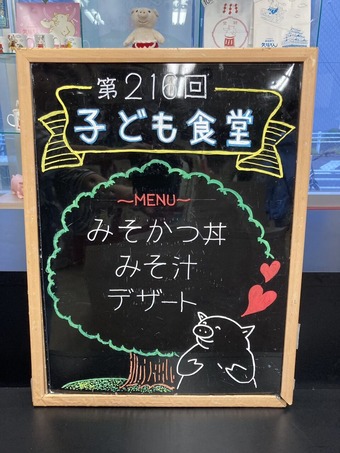 第210回
子ども食堂
～MENU～
みそかつ丼
みそ汁
デザート